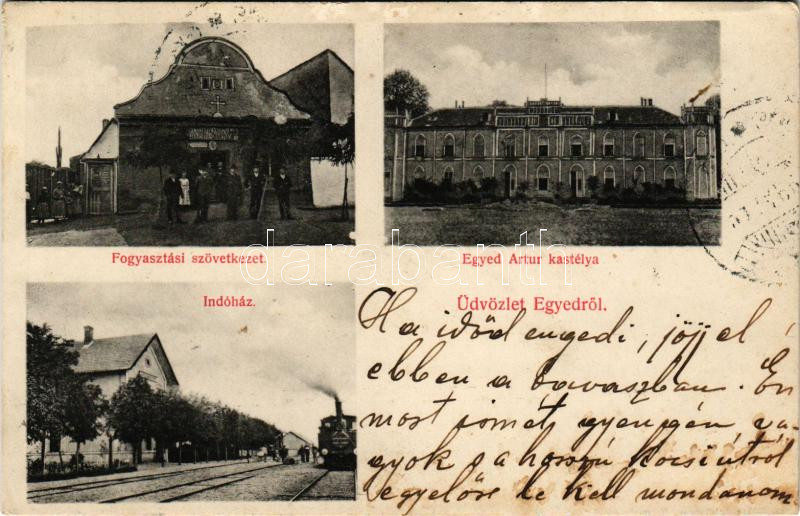 Fogyasztási szövetkezet.
Egyed Artur kastélya
Indóház.
Üdvözlet Egyedről.
Ha időd engedi, jöjj el
ebben a tavaszban. Én
most ismét gyengén va-
gyok s a hosszú kocsiútról
egyelőre le kell mondanom
darabanth